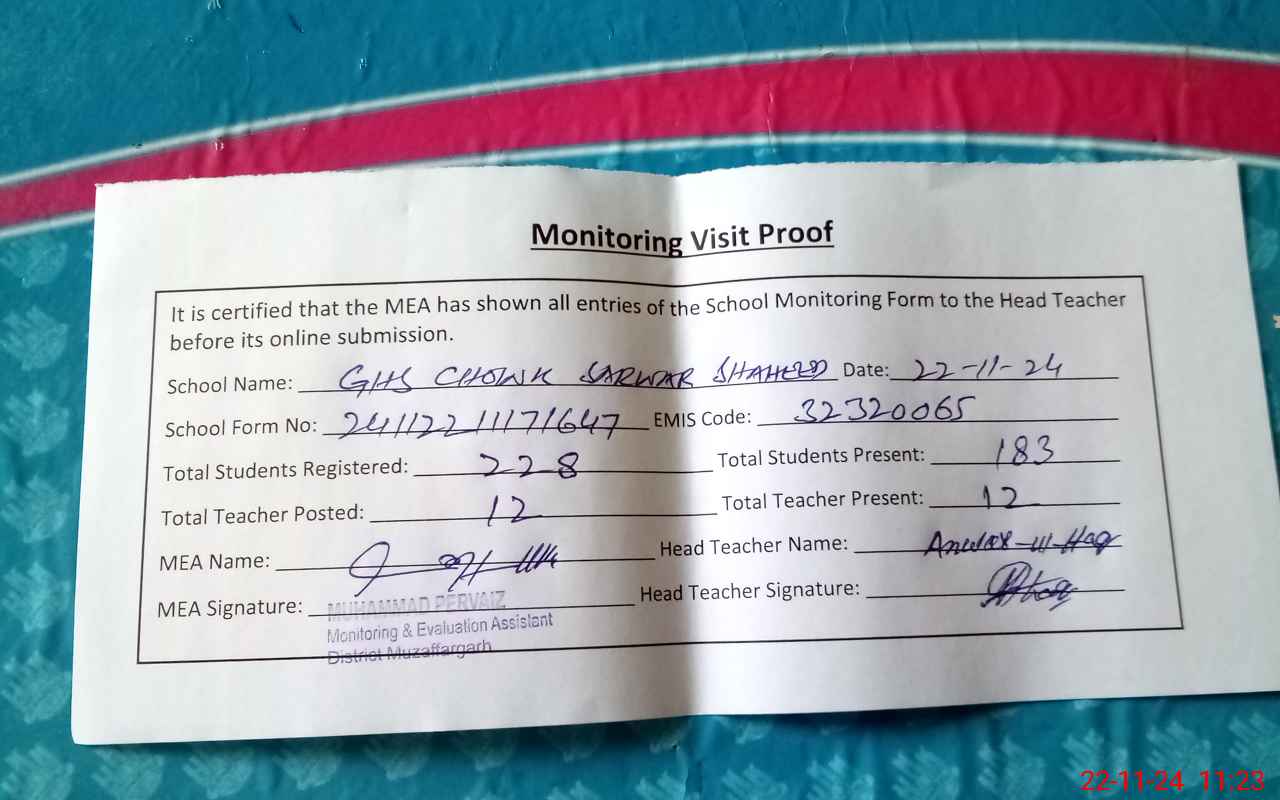 Monitoring Visit Proof
It is certified that the MEA has shown all entries of the School Monitoring Form to the Head Teacher
before its online submission.
School Name: GHS CHOWK SARWAR SHAHEED Date: 22-11-24
School Form No: 24112211171647 EMIS Code: 32320065
Total Students Registered: 228 Total Students Present: 183
Total Teacher Posted: 12 Total Teacher Present: 12
MEA Name: Head Teacher Name: Anwar-ul-Haq
MEA Signature: Head Teacher Signature:
MUHAMMAD PERVAIZ
Monitoring & Evaluation Assistant
District Muzaffargarh
22-11-24 11:23